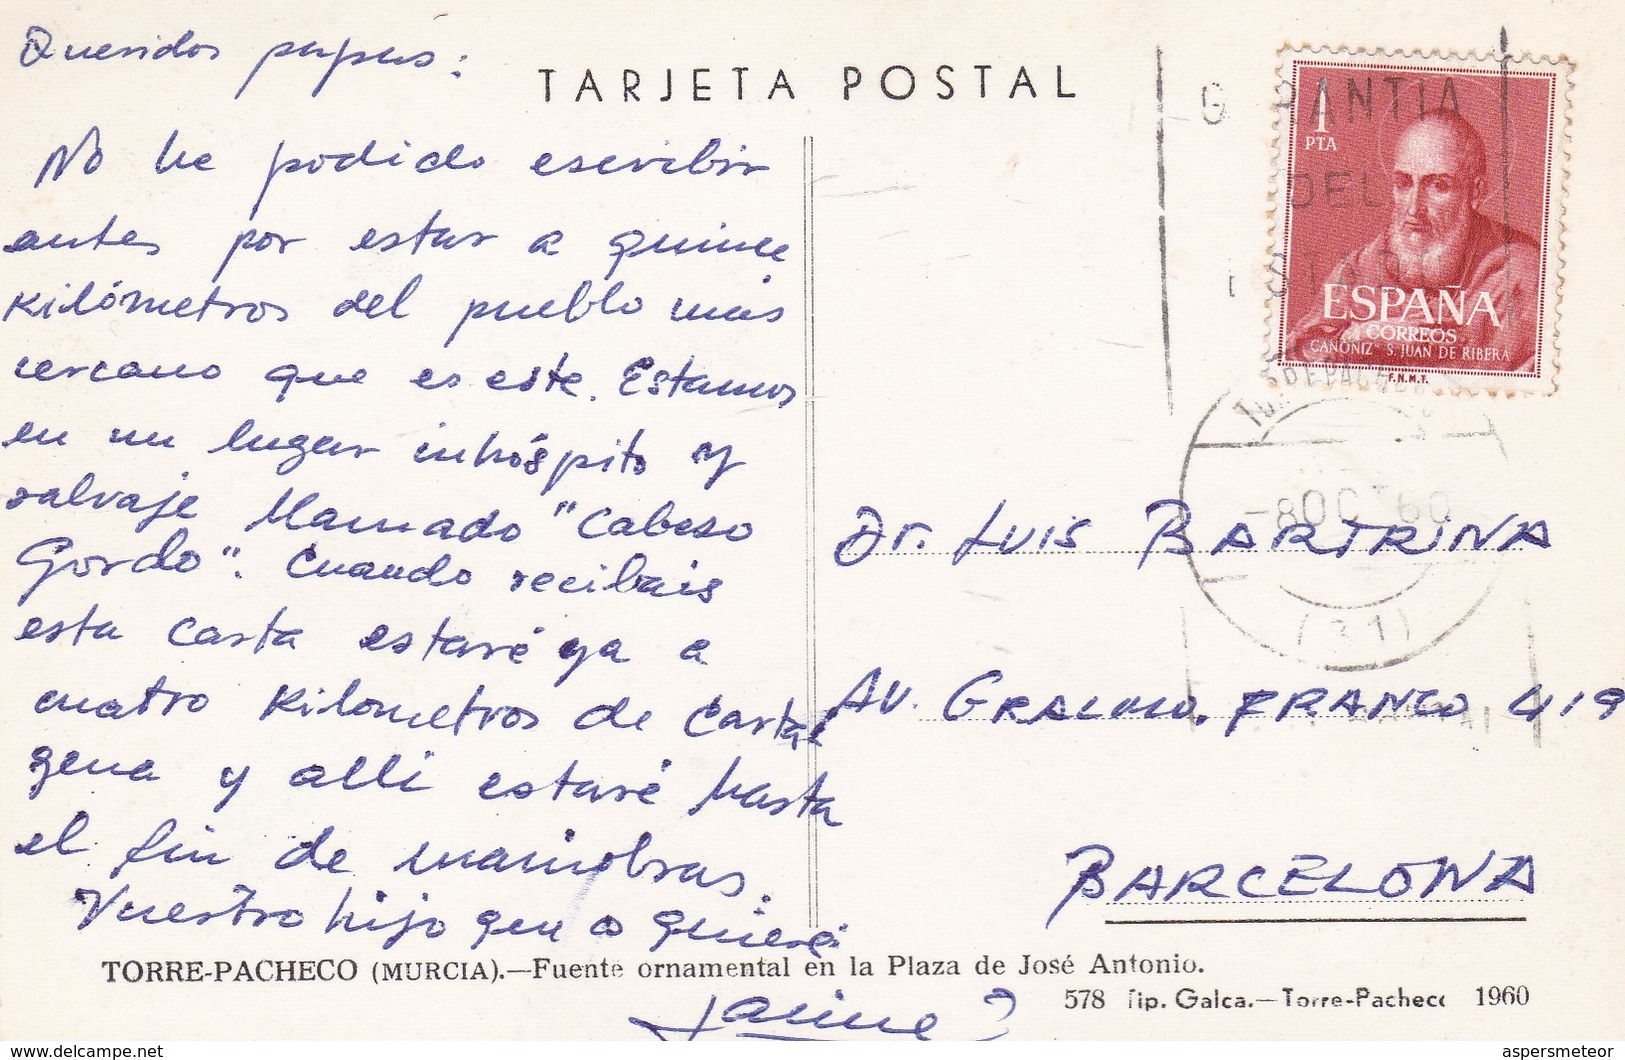 Queridos papas:
TARJETA POSTAL
No he podido escribir
antes por estar a quince
kilómetros del pueblo más
cercano que es este. Estamos
en un lugar inhóspito y
salvaje llamado "Cabeso
Gordo". Cuando recibais
esta carta estaré ya a
cuatro kilometros de Carta
gena y alli estaré hasta
el fin de maniobras.
Vuestro hijo que os quiere
Jaime
1
PTA
ESPAÑA
CORREOS
CANONIZ. S. JUAN DE RIBERA
F.N.M.T.
GARANTIA
DEL
ESTADO
-8 OCT 60
(31)
Dr. LUIS BARTRINA
AV. GRALMO. FRANCO 419
BARCELONA
TORRE-PACHECO (MURCIA).—Fuente ornamental en la Plaza de José Antonio.
578 Tip. Galca.—Torre-Pacheco 1960
www.delcampe.net
aspersmeteor